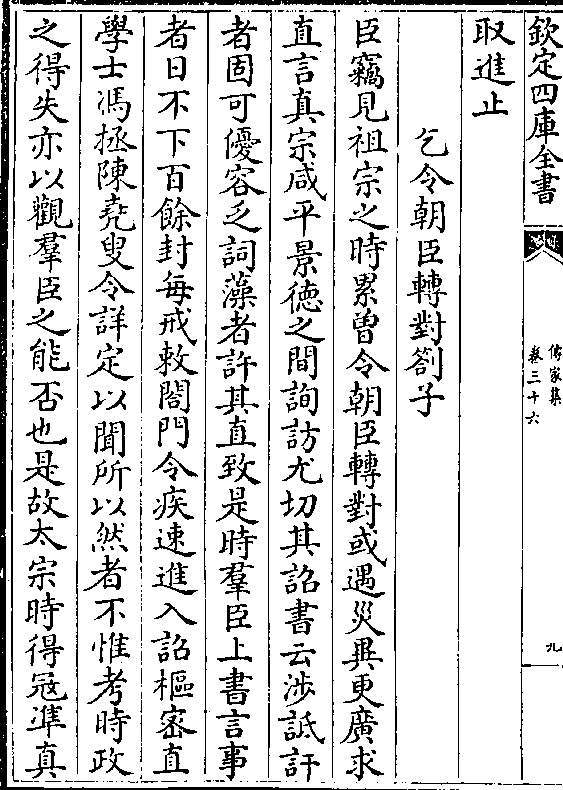 欽定四庫全書
傳家集
卷三十六
九
取進止
乞令朝臣轉對劄子
臣竊見祖宗之時累曽令朝臣轉對或遇災異更廣求
直言真宗咸平景徳之間詢訪尤切其詔書云渉詆訐
者固可優容乏詞藻者許其直致是時羣臣上書言事
者日不下百餘封每戒敕閤門令疾速進入詔樞密直
學士馮拯陳堯叟令詳定以聞所以然者不惟考時政
之得失亦以觀羣臣之能否也是故太宗時得冦凖真